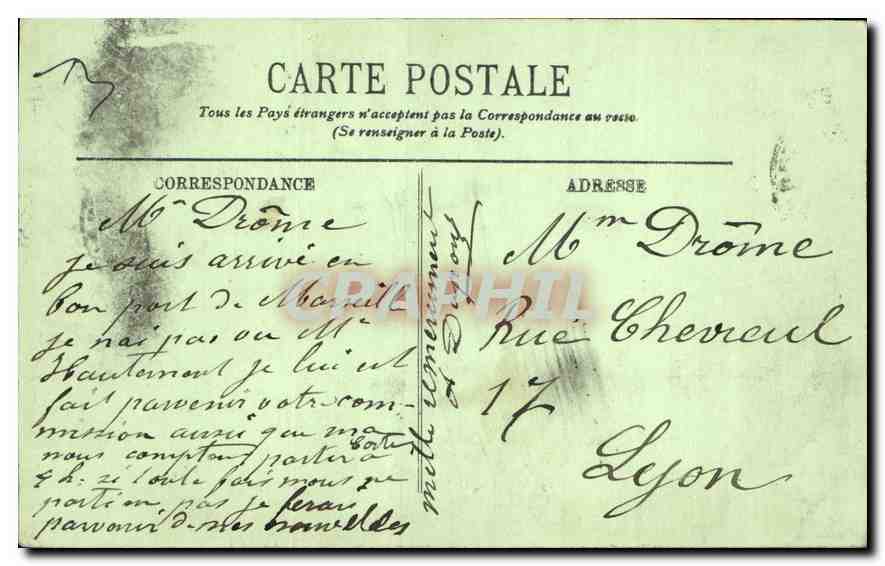 CARTE POSTALE
Tous les Pays étrangers n'acceptent pas la Correspondance au verso.
(Se renseigner à la Poste).
CORRESPONDANCE
Mr Drôme
je suis arrivé en
bon port de Marseille
je n'ai pas vu Mr
Hautement je lui est
fait parvenir votre com-
mission aussi que ma
carte
nous comptons partir a
4 h. si toute fois nous ne
parti en pas je ferais
parvenir de mes nouvelles
mille remerciement
ADRESSE
Mm Drôme
Rue Chevreul
17
Lyon
CPAPHIL